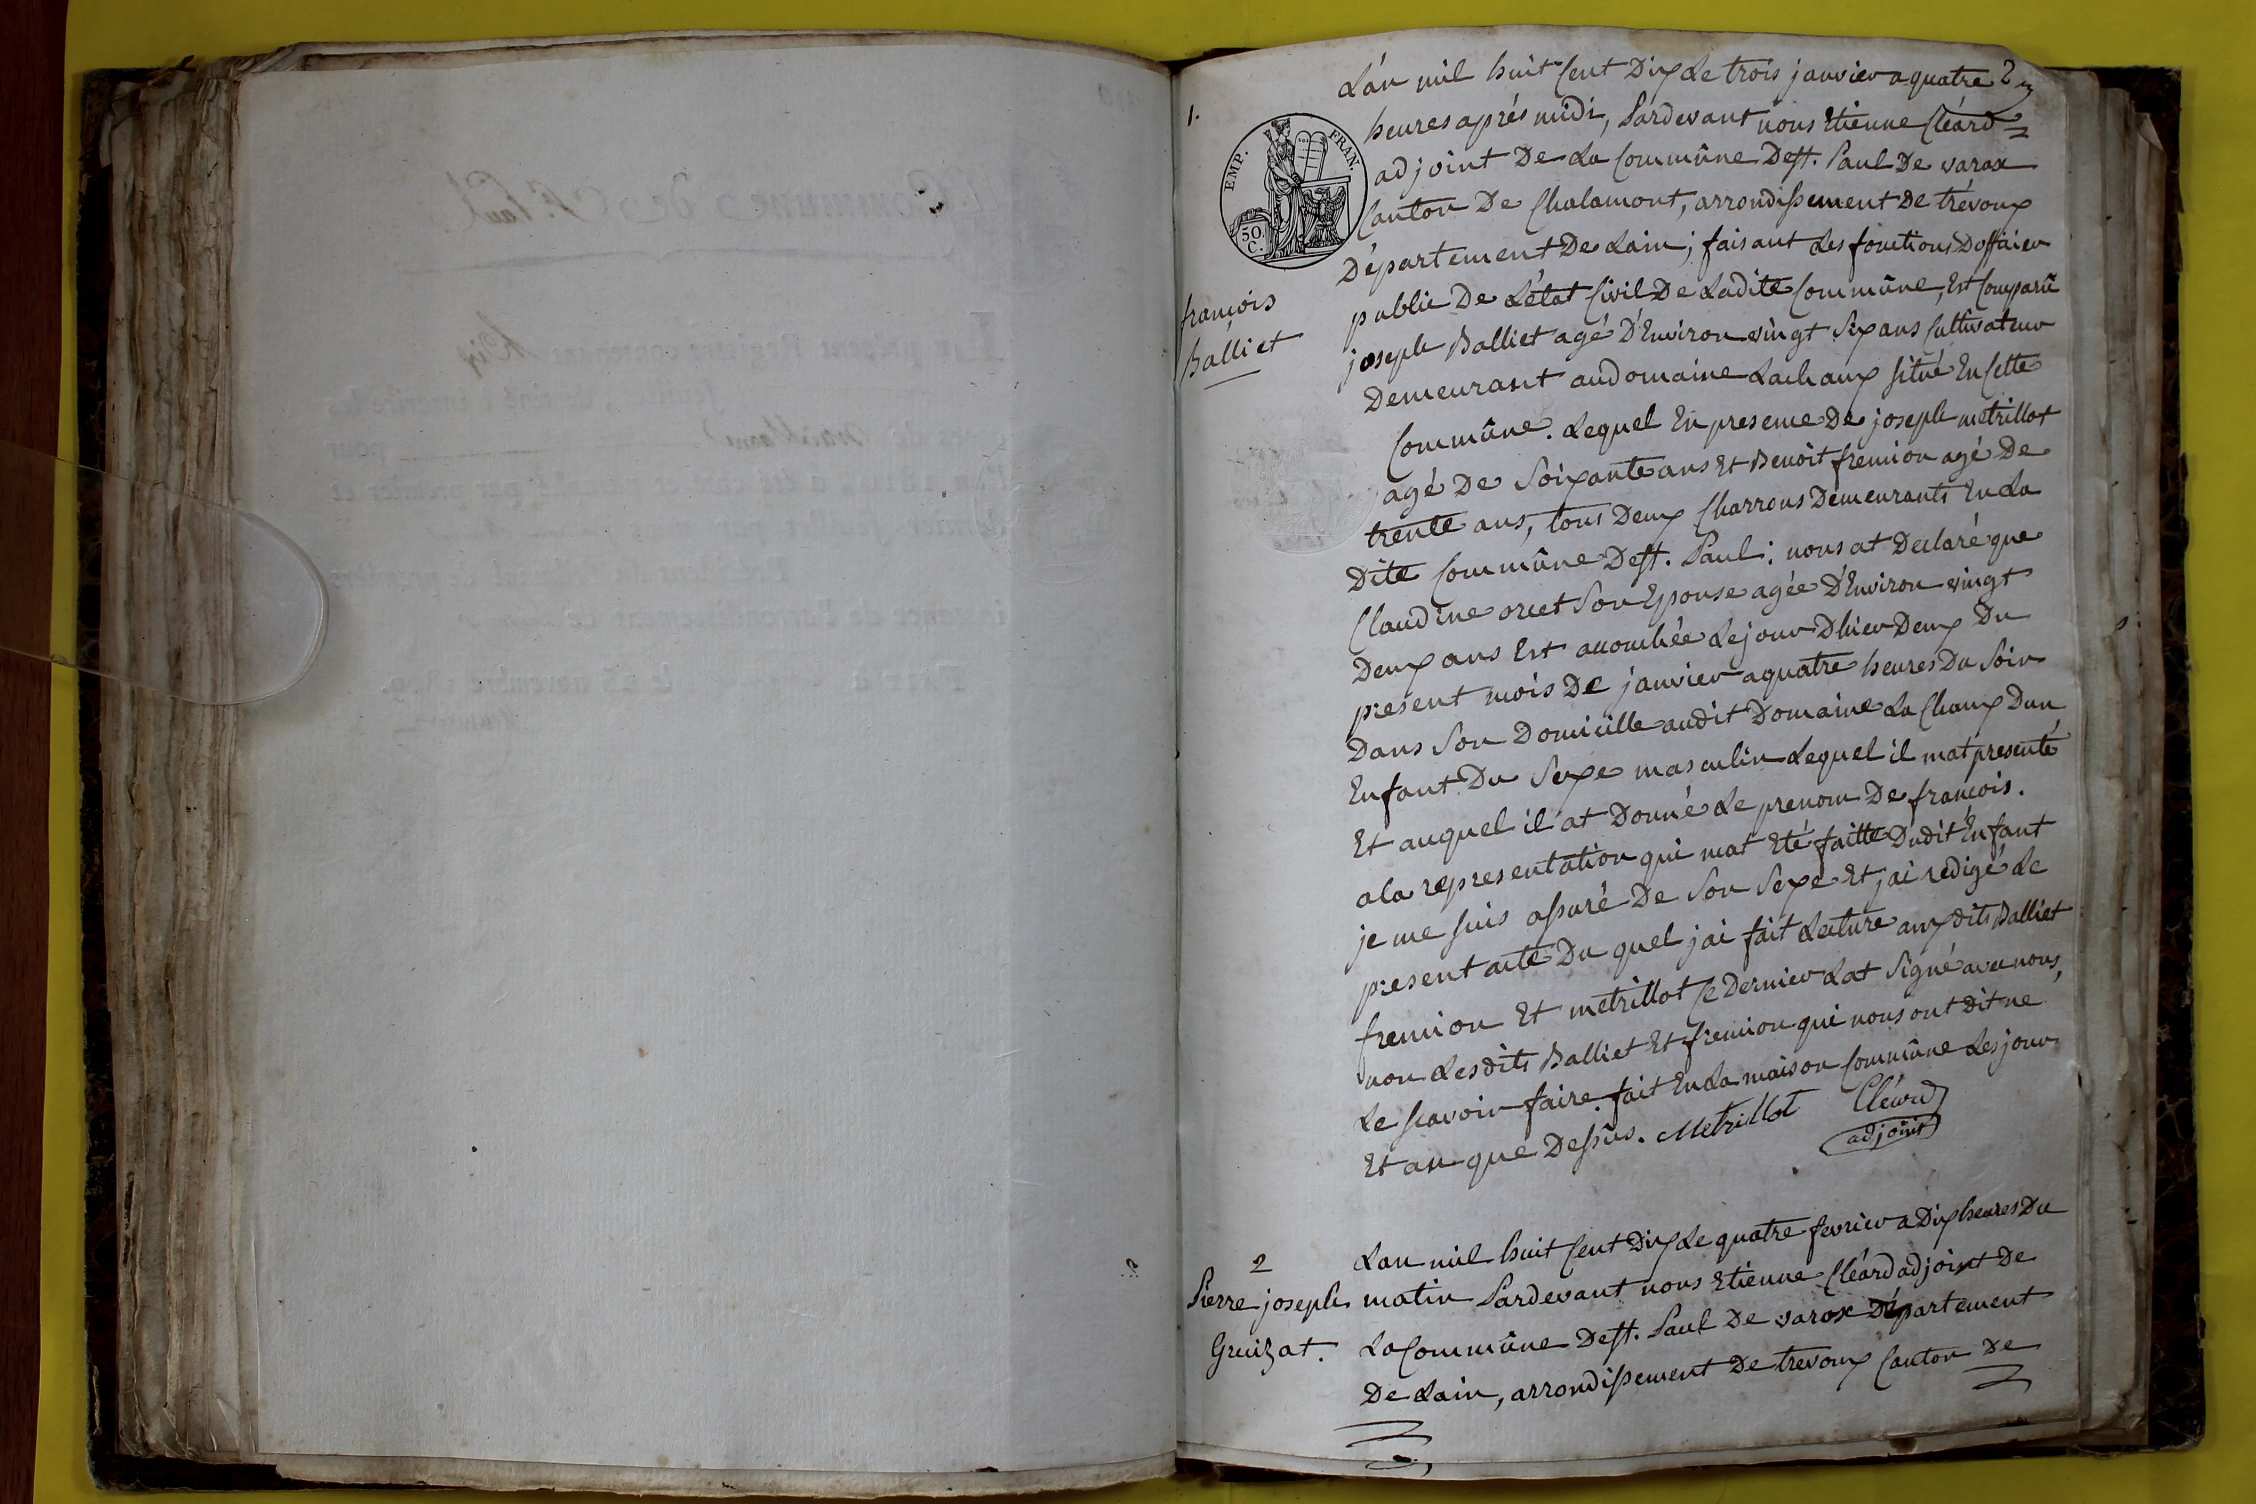 L'an mil huit Cent Dix Le trois janvier a quatre 2
1.
heures aprés midi, Pardevant nous Etienne Cléard
EMP. FRAN.
50. C.
adjoint De La Commûne De St. Paul De varax
Canton De Chalamont, arrondissement De trévoux
Département De Lain; faisant Les fonctions Dofficier
public De L'état Civil De Ladite Commûne, Est Comparû
françois
Balliet
joseph Balliet agé D'Environ vingt Six ans Cultivateur
Demeurant audomaine Lachaux situé En Cette
Commûne. Lequel En presence De joseph metrillot
agé De Soixante ans Et Benoit fremion agé De
trente ans, tous Deux Charrons Demeurants En La
Dite Commûne De St. Paul; nous at Declaré que
Claudine orcet Son Epouse agée D'Environ vingt
Deux ans Est accouchée Le jour Dhier Deux Du
present mois De janvier a quatre heures Du Soir
Dans Son Domicille audit Domaine La Chaux Dun
Enfant Du Sexe masculin Lequel il mat presenté
Et auquel il at Donné Le prenom De françois.
a la representation qui mat Eté faitte Dudit Enfant
je me suis assuré De Son Sexe Et jai redigé Le
present acte Du quel jai fait Lecture auxdits Balliet
fremion Et metrillot Ce Dernier Lat Signé avec nous,
non Lesdits Balliet Et fremion qui nous ont dit ne
Le scavoir faire. fait En La maison Commûne Les jour
Et an que Dessus. Metrillot Cléard
adjoint
2
Lan mil huit Cent Dix Le quatre fevrier a Dix heures Du
Pierre joseph
Gruizat.
matin Pardevant nous Etienne Cléard adjoint De
La Commûne De St. Paul De varax Département
De Lain, arrondissement De trevoux Canton De